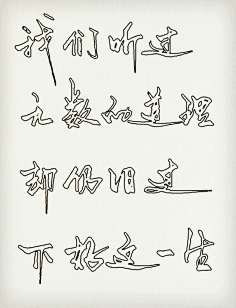 我们听过
无数的道理
却仍旧过
不好这一生